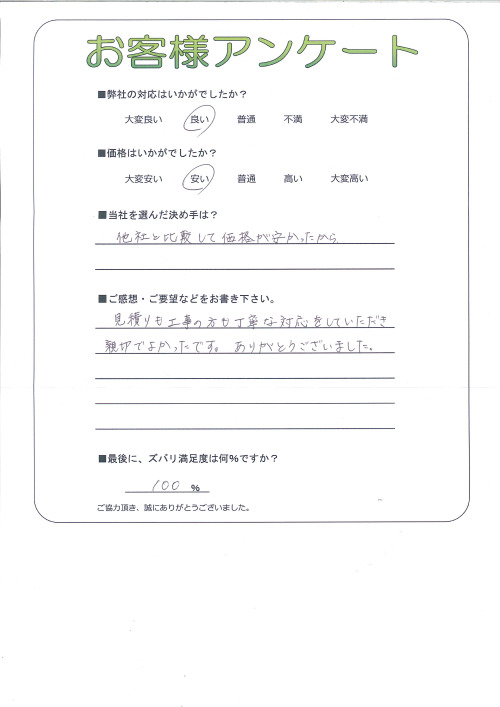 お客様アンケート
■弊社の対応はいかがでしたか？
大変良い 良い 普通 不満 大変不満
■価格はいかがでしたか？
大変安い 安い 普通 高い 大変高い
■当社を選んだ決め手は？
他社と比較して価格が安かったから
■ご感想・ご要望などをお書き下さい。
見積りも工事の方も丁寧な対応をしていただき
親切でよかったです。ありがとうございました。
■最後に、ズバリ満足度は何％ですか？
100 ％
ご協力頂き、誠にありがとうございました。